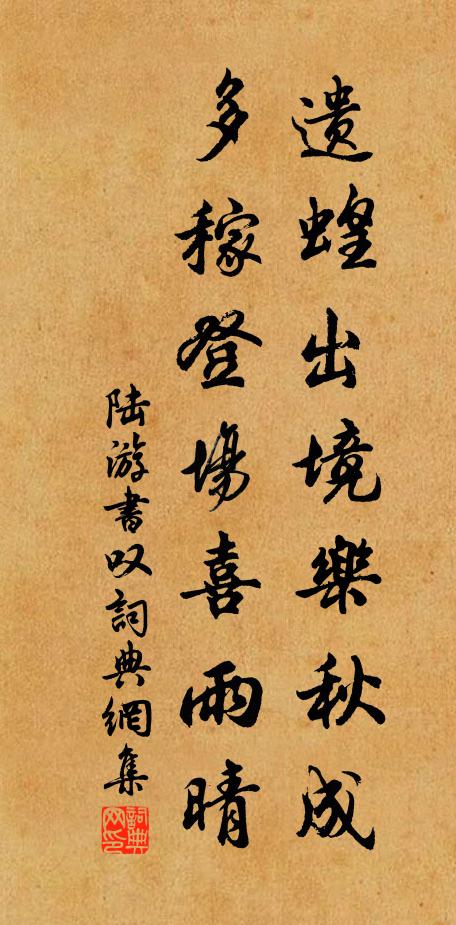 遺蝗出境樂秋成
多稼登場喜雨晴
陆游書叹詞典網集
詞典網印